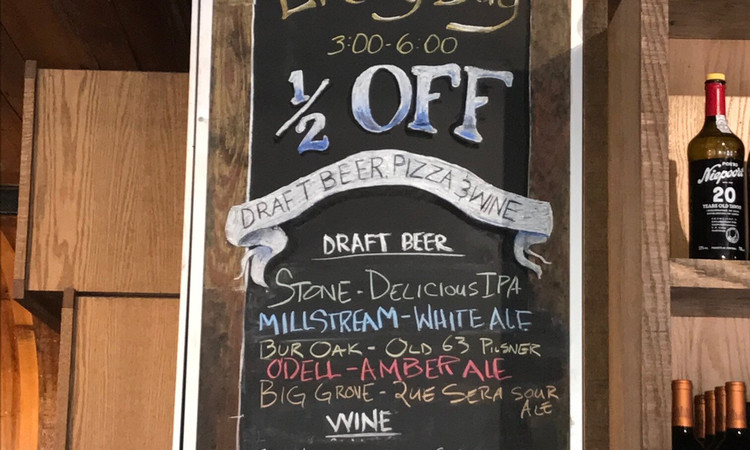 Every Day
3:00-6:00
1/2 OFF
DRAFT BEER, PIZZA & WINE
DRAFT BEER
STONE - DELICIOUS IPA
MILLSTREAM - WHITE ALE
BUR OAK - OLD 63 PILSNER
ODELL - AMBER ALE
BIG GROVE - QUE SERA SOUR
ALE
WINE
PORTO
Niepoort
20
YEARS OLD TAWNY